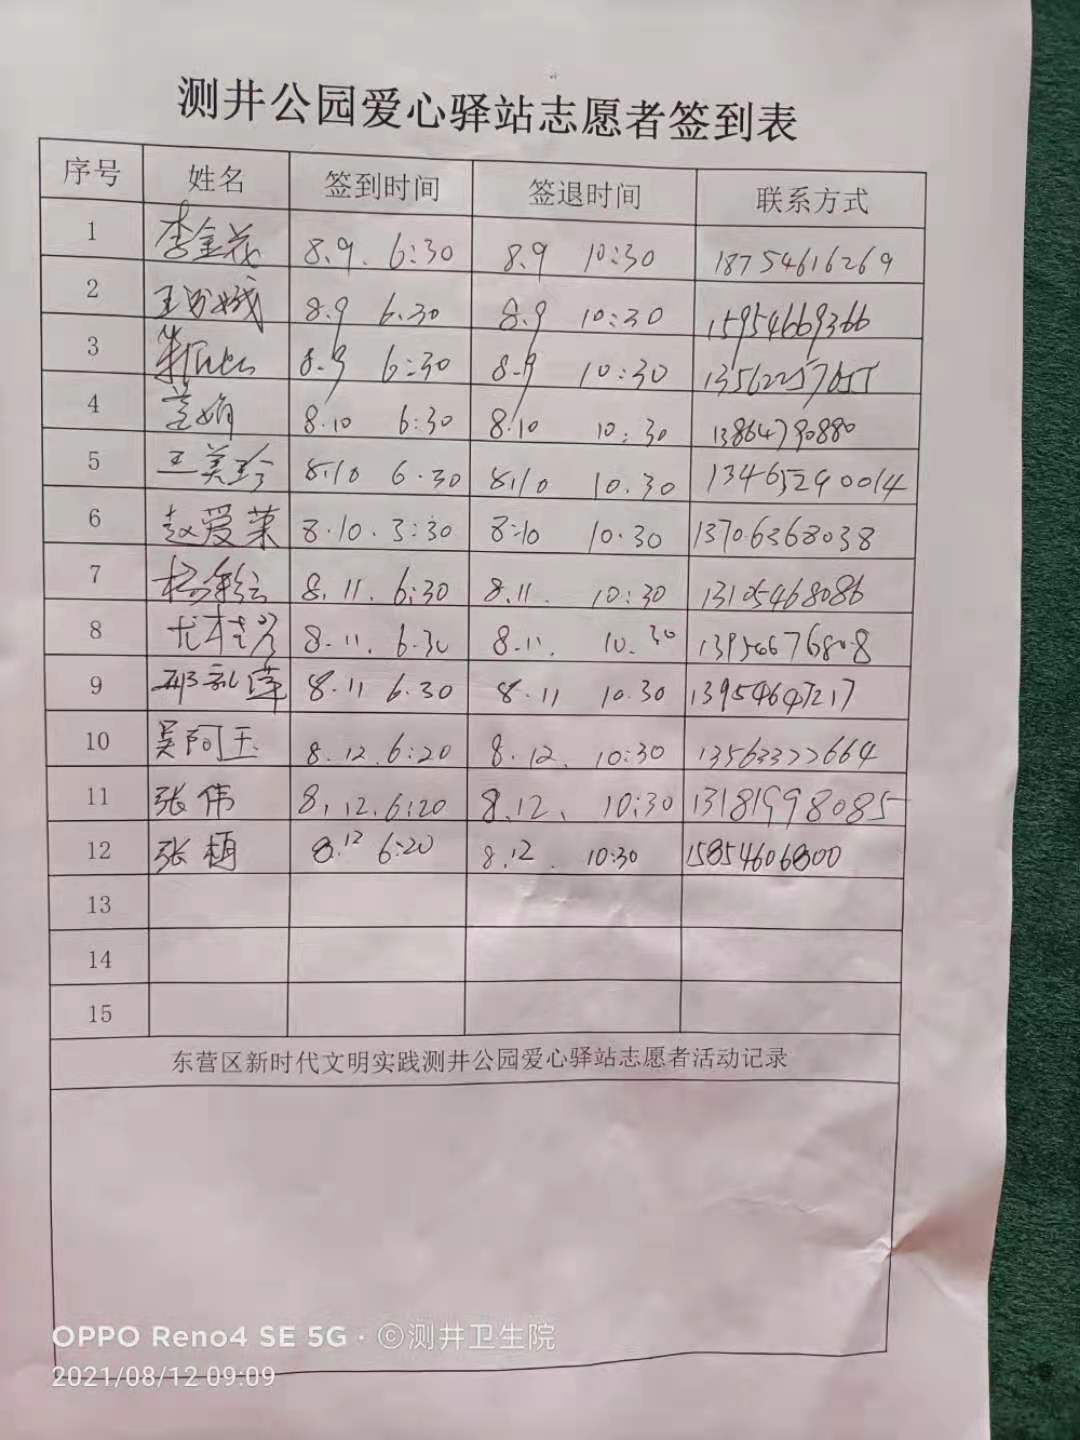 测井公园爱心驿站志愿者签到表
序号 姓名 签到时间 签退时间 联系方式
1 李金花 8.9. 6:30 8.9 10:30 18754616269
2 王 8.9 6.30 8.9 10:30 15954669366
3 8.9 6:30 8.9 10:30
4 8.10 6:30 8.10 10:30 13864790880
5 王美珍 8.10 6.30 8.10 10.30 13465290014
6 赵爱莱 8.10.3:30 8:10 10.30 13706368038
7 杨 8.11. 6:30 8.11. 10:30 13105468086
8 尤桂 8.11. 6.30 8.11. 10.30 13954676808
9 邢莲 8.11 6.30 8.11 10.30 13954647217
10 吴阿玉 8.12.6:20 8.12. 10:30 13563322664
11 张伟 8.12.6:20 8.12. 10:30 13181998085
12 张植 8.12 6:20 8.12. 10:30 15854606800
13
14
15
东营区新时代文明实践测井公园爱心驿站志愿者活动记录
OPPO Reno4 SE 5G · ©测井卫生院
2021/08/12 09:09